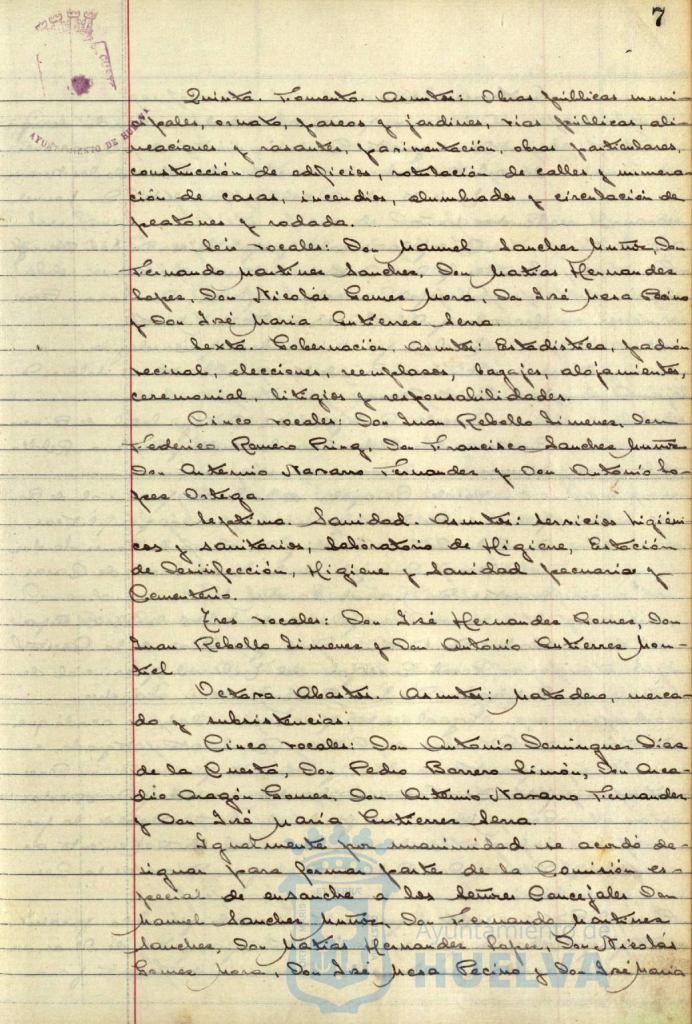 7
AYUNTAMIENTO DE HUELVA
Quinta. Fomento. Asuntos: Obras públicas muni-
cipales, ornato, paseos y jardines, vías públicas, ali-
neaciones y rasantes, pavimentación, obras particulares,
construcción de edificios, rotulación de calles y numera-
ción de casas, incendios, alumbrados y circulación de
peatones y rodada.
Seis vocales: Don Manuel Sanchez Muñoz, Don
Fernando Martinez Sanchez, Don Matías Hernandez
Lopez, Don Nicolás Gomez Mora, Don José Mesa Pecino
y Don José María Gutierrez Serra.
Sexta. Gobernación. Asuntos: Estadística, padrón
vecinal, elecciones, reemplazos, bagajes, alojamientos,
ceremonial, litigios y responsabilidades.
Cinco vocales: Don Juan Rebollo Jimenez, Don
Federico Romero Don Francisco Sanchez Muñoz
Don Antonio Navarro Fernandez y Don Antonio Lo-
pez Ortega.
Septima. Sanidad. Asuntos: Servicios higiéni-
cos y sanitarios, Laboratorio de Higiene, Estación
de Desinfección, Higiene y Sanidad pecuaria y
Cementerio.
Tres vocales: Don José Hernandez Gomez, Don
Juan Rebollo Jimenez y Don Antonio Gutierrez Mon-
tiel
Octava. Abastos. Asuntos: Matadero, merca-
do y subsistencias.
Cinco vocales: Don Antonio Dominguez Diaz
de la Cuesta, Don Pedro Borrero Limón, Don Arca-
dio Aragón Gomez, Don Antonio Navarro Fernandez
y Don José María Gutierrez Serra.
Igualmente por unanimidad se acordó de-
signar para formar parte de la Comisión es-
pecial de ensanche a los Señores Concejales Don
Manuel Sanchez Muñoz, Don Fernando Martinez
Sanchez, Don Matías Hernandez Lopez, Don Nicolás
Gomez Mora, Don José Mesa Pecino y Don José María
Ayuntamiento de
HUELVA